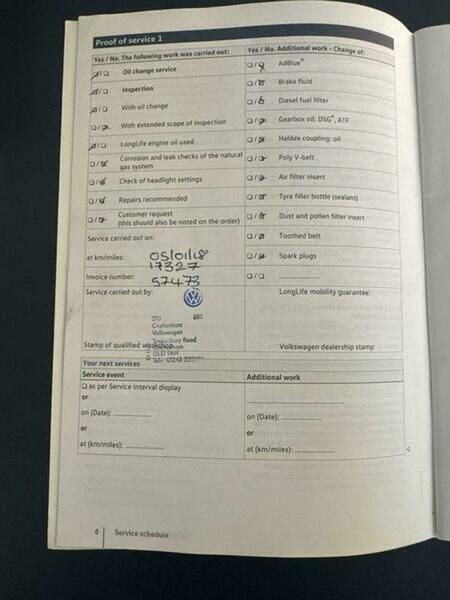 Proof of service 1
Yes / No. The following work was carried out:
Oil change service
Inspection
With oil change
With extended scope of inspection
LongLife engine oil used
Corrosion and leak checks of the natural
gas system
Check of headlight settings
Repairs recommended
Customer request
(this should also be noted on the order)
Yes / No. Additional work - Change of:
AdBlue®
Brake fluid
Diesel fuel filter
Gearbox oil: DSG®, ATF
Haldex coupling: oil
Poly V-belt
Air filter insert
Tyre filler bottle (sealant)
Dust and pollen filter insert
Toothed belt
Spark plugs
Service carried out on:
05/01/18
at km/miles:
17327
Invoice number:
57473
Service carried out by:
Cheltenham
Volkswagen
Road
Stamp of qualified workshop
LongLife mobility guarantee:
Volkswagen dealership stamp
Your next services
Service event
as per Service interval display
or
on (Date):
or
at (km/miles):
Additional work
on (Date):
or
at (km/miles):
6 Service schedule